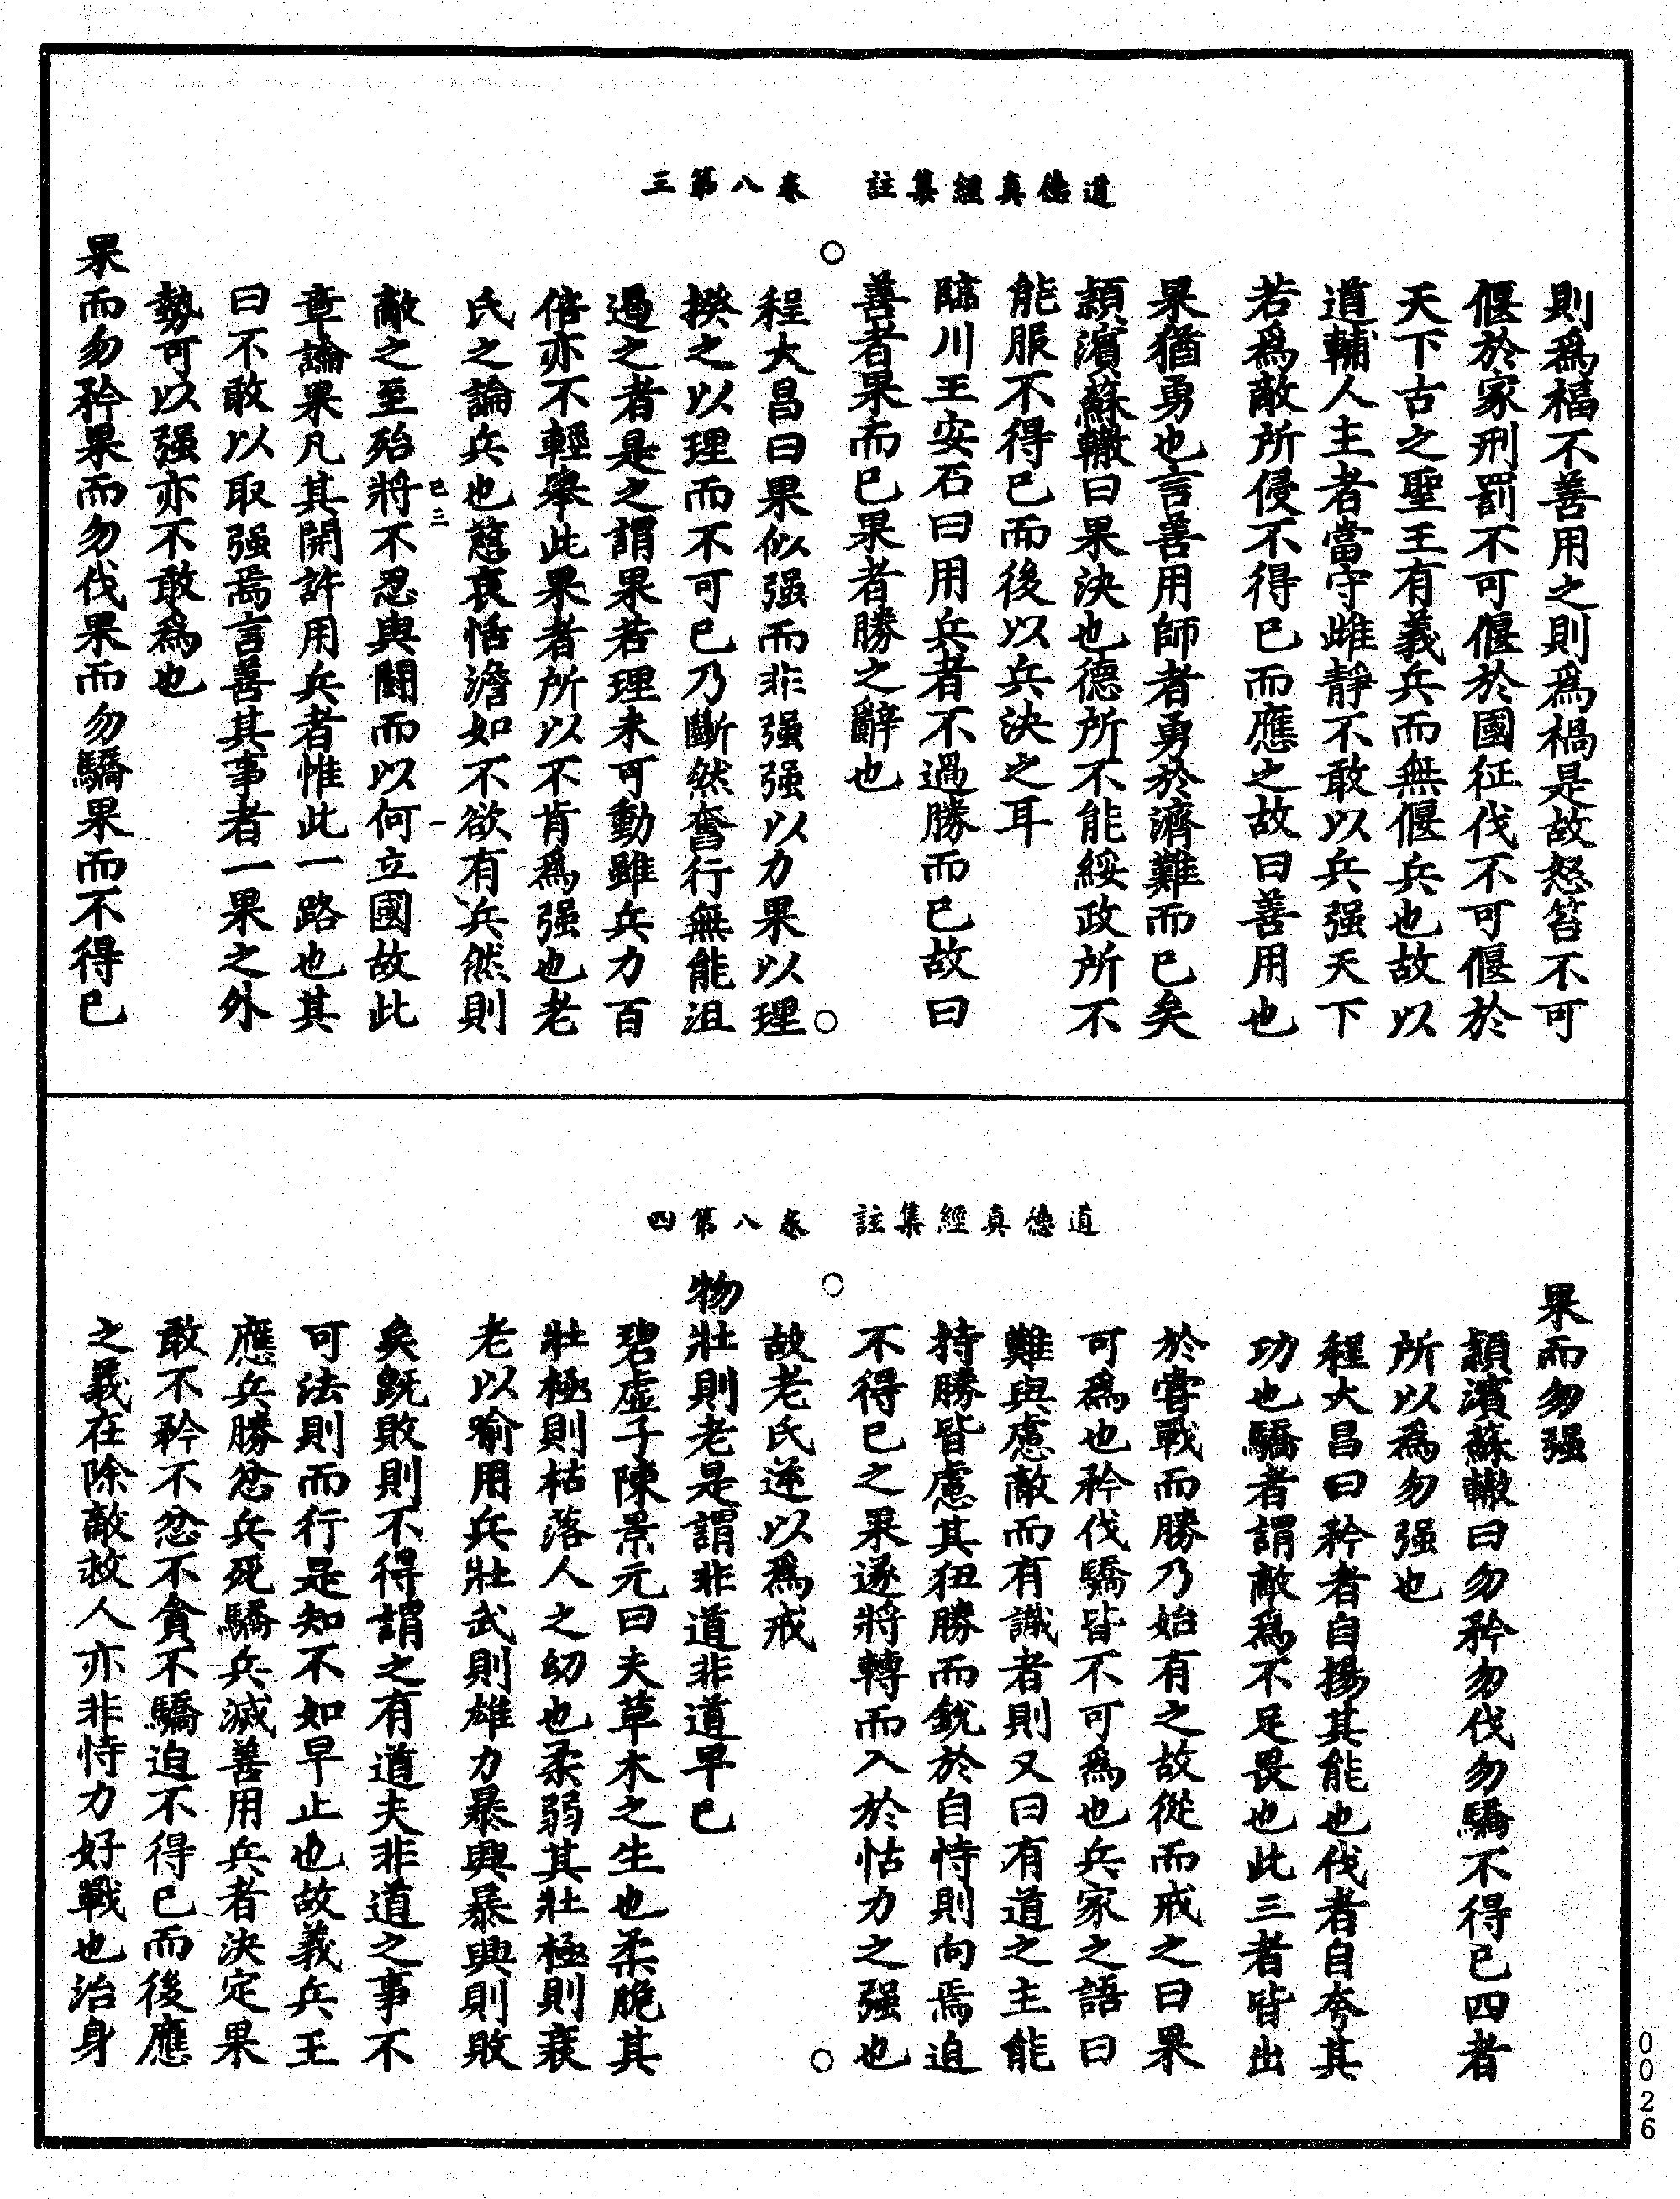 道德真經集註　卷八第三
則爲福不善用之則爲禍是故怒笞不可
偃於家刑罰不可偃於國征伐不可偃於
天下古之聖王有義兵而無偃兵也故以
道輔人主者當守雌靜不敢以兵强天下
若爲敵所侵不得已而應之故曰善用也
果猶勇也言善用師者勇於濟難而已矣
潁濱蘇轍曰果決也德所不能綏政所不
能服不得已而後以兵決之耳
臨川王安石曰用兵者不過勝而已故曰
善者果而已果者勝之辭也
程大昌曰果似强而非强强以力果以理
揆之以理而不可已乃斷然奮行無能沮
過之者是之謂果若理未可動雖兵力百
倍亦不輕舉此果者所以不肯爲强也老
氏之論兵也慈哀恬澹如不欲有兵然則
敵之至殆將不忍與鬬而以何立國故此
已三
一
章論果凡其開許用兵者惟此一路也其
曰不敢以取强焉言善其事者一果之外
勢可以强亦不敢爲也
果而勿矜果而勿伐果而勿驕果而不得已
道德真經集註　卷八第四
果而勿强
潁濱蘇轍曰勿矜勿伐勿驕不得已四者
所以爲勿强也
程大昌曰矜者自揚其能也伐者自夸其
功也驕者謂敵爲不足畏也此三者皆出
於嘗戰而勝乃始有之故從而戒之曰果
可爲也矜伐驕皆不可爲也兵家之語曰
難與慮敵而有識者則又曰有道之主能
持勝皆慮其狃勝而銳於自恃則向焉迫
不得已之果遂將轉而入於怙力之强也
故老氏遂以爲戒
物壯則老是謂非道非道早已
碧虛子陳景元曰夫草木之生也柔脆其
壯極則枯落人之幼也柔弱其壯極則衰
老以喻用兵壯武則雄力暴興暴興則敗
矣既敗則不得謂之有道夫非道之事不
可法則而行是知不如早止也故義兵王
應兵勝忿兵死驕兵滅善用兵者決定果
敢不矜不忿不貪不驕迫不得已而後應
之義在除敵救人亦非恃力好戰也治身
0026